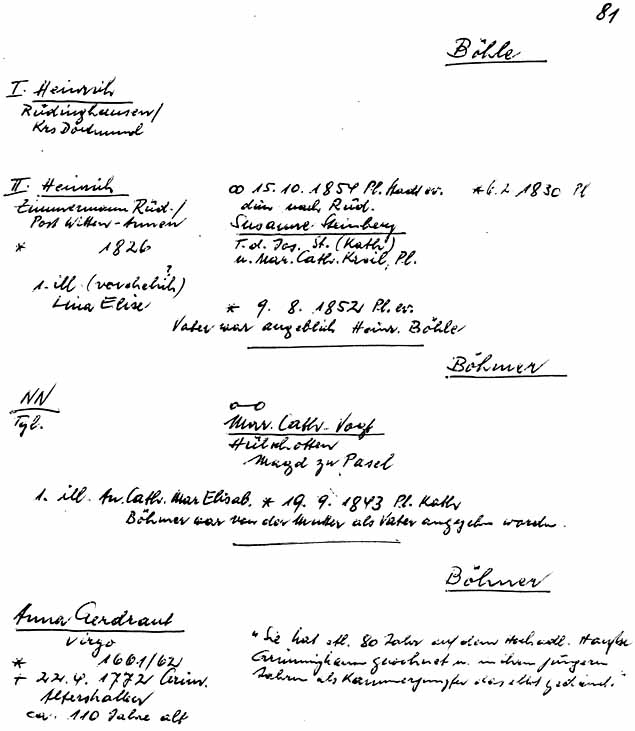 81
Böhle
I. Heinrich
Rüdinghausen/
Krs Dortmund
II. Heinrich
Zimmermann Rüd./
Post Witten-Annen
* 1826
∞ 15.10.1854 Pl. Stadt ev.
dim nach Rüd.
Susanne Steinberg
T.d. Jos. St. (Kath)
u. Mar. Cath. Kroil, Pl.
*6.2 1830 Pl
1. ill. (vorehelich)
?
Lina Elise
* 9. 8. 1852 Pl. ev.
Vater war angeblich Heinr. Böhle
Böhmer
NN
Tgl.
o-o
Mar. Cath. Vogt
Hülschotten
Magd zu Pasel
1. ill. An. Cath. Mar Elisab. * 19. 9. 1843 Pl. Kath
Böhmer war von der Mutter als Vater angegeben worden.
Böhmer
Anna Gerdraut
Virgo
* 1661/62
† 22.4. 1772 Grim.
Altershalber
ca. 110 Jahre alt
"Sie hat etl. 80 Jahr auf dem Hochadl. Hause
Grimminghaus gewohnt u. in ihren jüngern
Jahren als Kammerjungfer daselbst gedient."